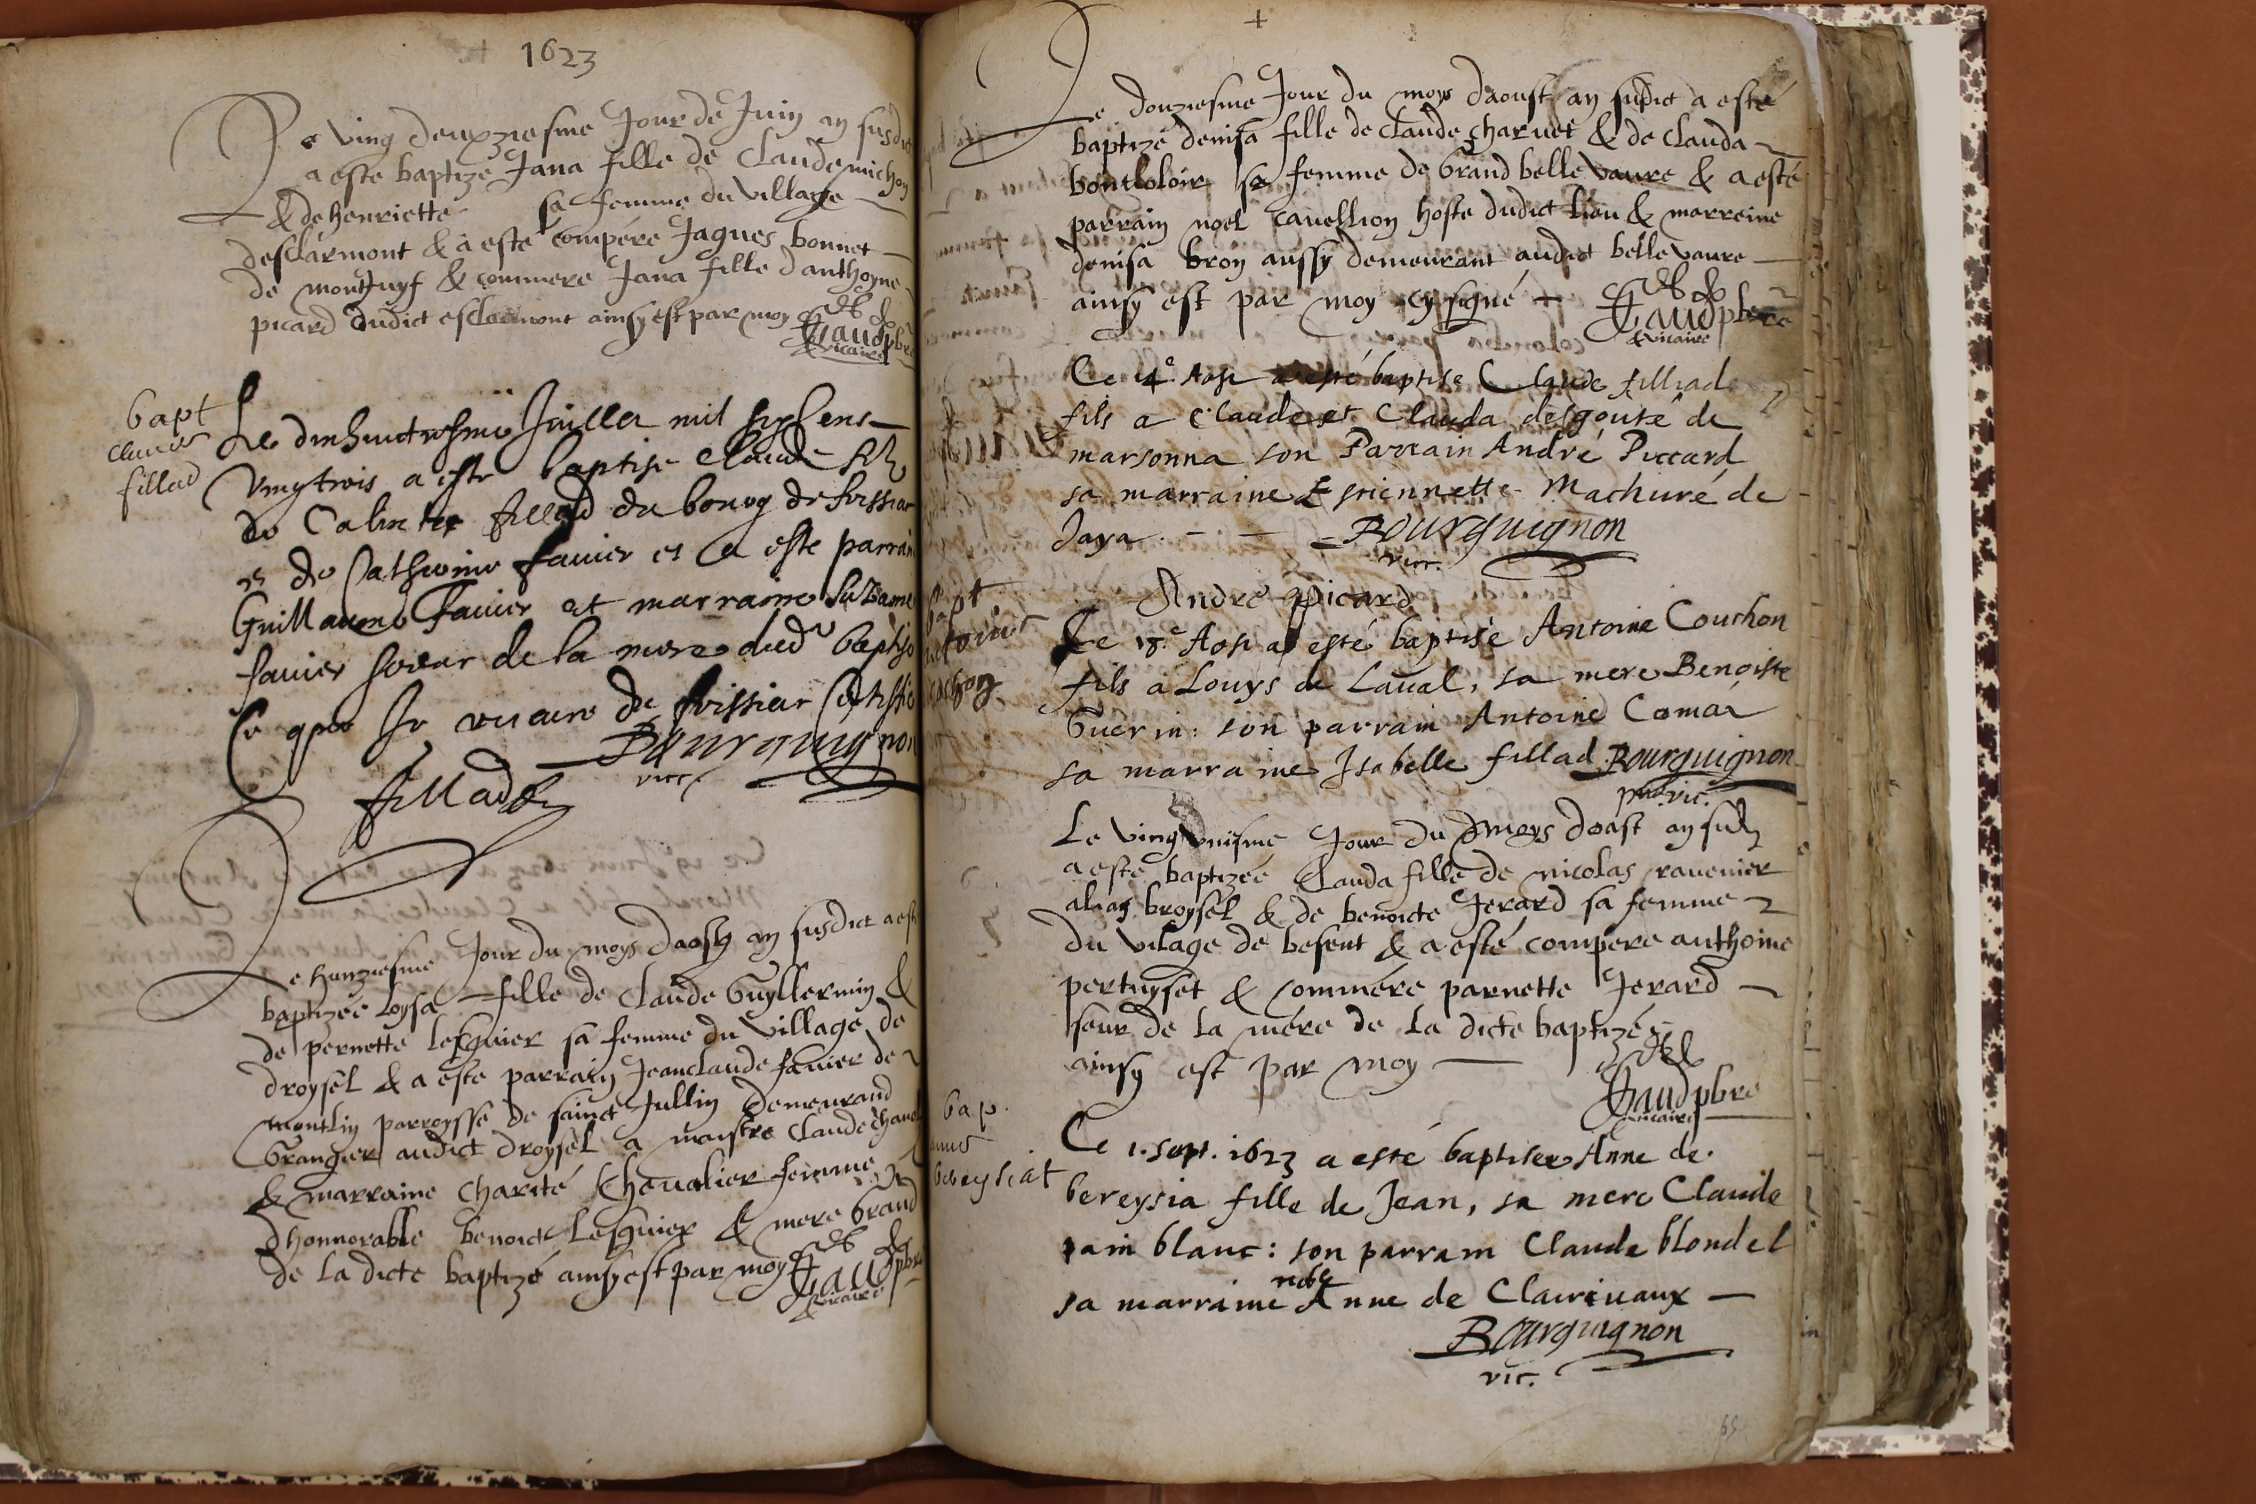 1623
Le ving deuxziesme Jour de Juin an susdict
a este baptize Jana fille de Claude michon
& de henriette sa femme du village
desclarmont & a esté compére Jaques bonnet
de montjuyf & commere Jana fille danthoyne
picard dudict esclarmont ainsy est par moy
Gaud pbre
& vicaire
bapt
claude
fillad
Le dixhuictiesme Juillet mil six cens
vingttrois a este baptise Claude filz
de fillad du bourg de
et de Catherine favier et a este parrain
Guillaume favier et marraine Suzanne
favier soeur de la mere dud baptise
Ce que Je vicaire de
Bourguignon
vicc.
fillad
Le hunziesme Jour du moys daost an susdict a esté
baptizée Loysa fille de Claude Guyllermin &
de pernette lesguier sa femme du village de
droysel & a este parrain Jeanclaude favier de
montlin parroysse de sainct Jullin demeurand
Grangier audict droysel a maistre Claude
& marraine Charité Chevalier femme
dhonnorable benoict Lesguier & mere Grand
de la dicte baptizé ainsy est par moy
Gaud pbre
& vicaire
+
Le douziesme Jour du moys daoust an sudict a esté
baptizé denisa fille de Claude Charvet & de Clauda
bontloloir sa femme de Grand belle vavre & a esté
parrain noel Cavellion hoste dudict lieu & marreine
denisa broy aussy demeurant audict belle vavre
ainsy est par moy cy signé
Gaud pbre
& vicaire
Ce 4e Aost a esté baptisé Claude filliad
fils a Claude et Clauda desgouté de
marsonna son Parrain André Piccard
sa marraine Estiennette Machuré de
Jaya Bourguignon
vicc.
André Picard
bapt
antoine
cochon
Le 18e Aost a esté baptisé Antoine Couchon
fils a Louys de Laval, sa mere Benoiste
Guerin: son parrain Antoine Comar
sa marraine Isabelle fillad Bourguignon
vic.
Le ving unisme Jour du moys doast an
a esté baptizée Clauda fille de nicolas ravenier
alias broysel & de benoicte Jerard sa femme
du vilage de besent & a esté compere anthoine
pertuyset & commére parnette Jerard
seur de la mére de la dicte baptizé
ainsy est par moy
Gaud pbre
vicaire
bap.
anne
bereysiat
Ce 1. sept. 1623 a esté baptisee Anne de
bereysia fille de Jean, sa mere Claude
pain blanc: son parrain Claude blondel
sa marraine noble Anne de Clairivaux
Bourguignon
vic.